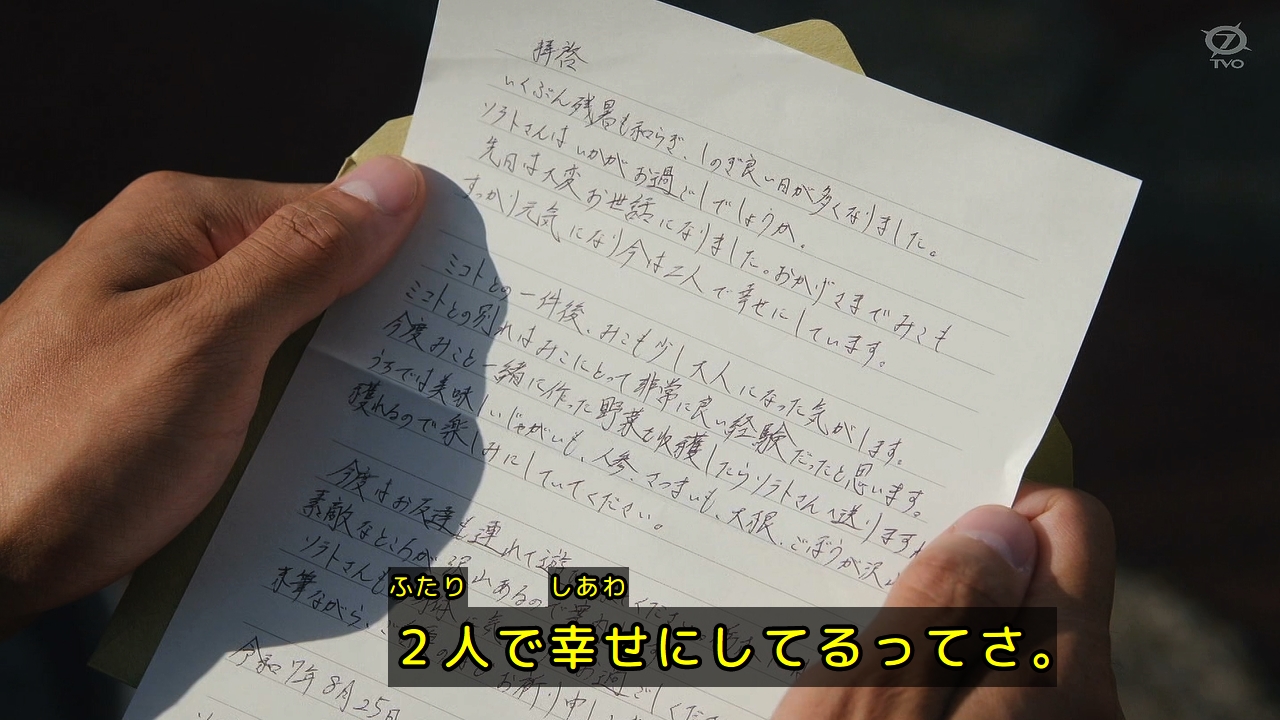 TVO
拝啓
いくぶん残暑も和らぎ、しのぎ良い日が多くなりました。
ソラトさんはいかがお過ごしでしょうか。
先日は大変お世話になりました。おかげさまでみこも
すっかり元気になり今は二人で幸せにしています。
ミコトとの一件後、みこも少し大人になった気がします。
ミコトとの別れはみこにとって非常に良い経験だったと思います。
今度みこと一緒に作った野菜を収穫したらソラトさんへ送りますね
うちでは美味しいじゃがいも、人参、さつまいも、大根、ごぼうが沢山
穫れるので楽しみにしていてください。
今度はお友達も連れて遊
素敵なところが沢山あるの
ソラトさんも
末筆ながら、
お祈り申し
令和7年8月25日
ふたり しあわ
2人で幸せにしてるってさ。